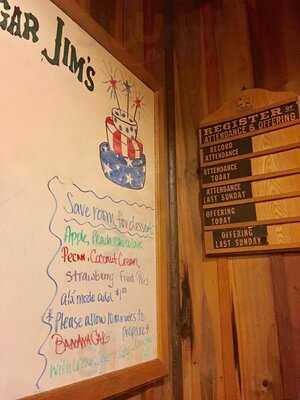 GAR JIM'S
Save room for dessert
Apple, Peach
Pecan, Coconut Cream
Strawberry Fried Pies
alá mode add $1.00
* Please allow 10 minutes to
prepare *
BANANA
with
REGISTER OF
ATTENDANCE & OFFERING
RECORD
ATTENDANCE
ATTENDANCE
TODAY
ATTENDANCE
LAST SUNDAY
OFFERING
TODAY
OFFERING
LAST SUNDAY